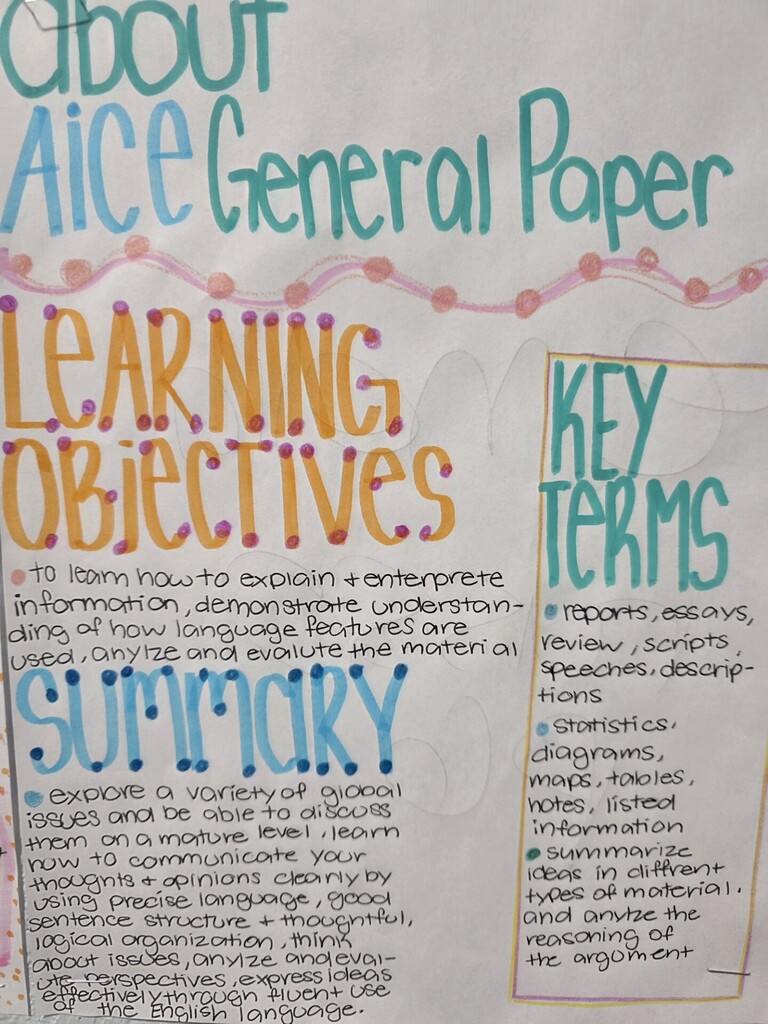 about
AiCE General Paper
LEARNING
OBJECTIVES
• to learn how to explain + enterprete
information, demonstrate understan-
ding of how language features are
used, anylze and evalute the material
SUMMARY
• explore a variety of global
issues and be able to discuss
them on a mature level, learn
how to communicate your
thoughts + opinions clearly by
using precise language, good
sentence structure + thoughtful,
logical organization, think
about issues, anylze and eval-
ute perspectives, express ideas
effectively through fluent use
of the English language.
KEY
TERMS
• reports, essays,
review, scripts,
speeches, descrip-
tions
• statistics,
diagrams,
maps, tables,
notes, listed
information
• summarize
ideas in diffrent
types of material.
and anylze the
reasoning of
the argument